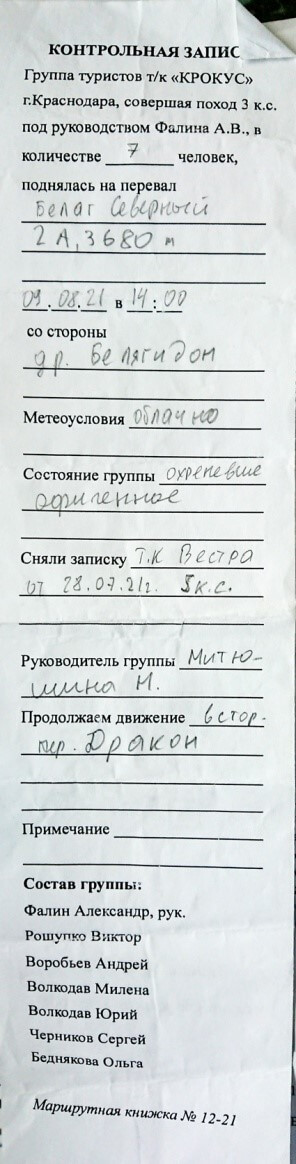 КОНТРОЛЬНАЯ ЗАПИС
Группа туристов т/к «КРОКУС»
г.Краснодара, совершая поход 3 к.с.
под руководством Фалина А.В., в
количестве 7 человек,
поднялась на перевал
Белаг Северный
2А, 3680 м
09.08.21 в 14:00
со стороны
др. Белягидон
Метеоусловия облачно
Состояние группы охреневше
офигенное
Сняли записку Т.К Вестра
от 28.07.21г. 5 к.с.
Руководитель группы Митю-
шина Н.
Продолжаем движение в стор.
пер. Дракон
Примечание
Состав группы:
Фалин Александр, рук.
Рошупко Виктор
Воробьев Андрей
Волкодав Милена
Волкодав Юрий
Черников Сергей
Беднякова Ольга
Маршрутная книжка № 12-21